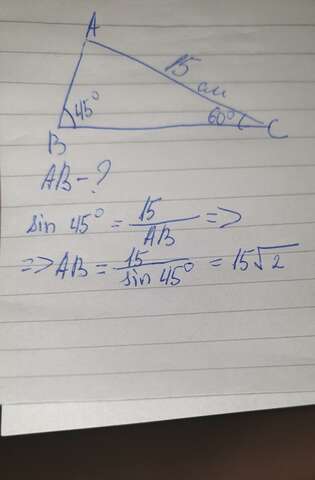 A
15 см
45°
60°
B
C
AB - ?
sin 45° = 15/AB =>
=> AB = 15/sin 45° = 15√2